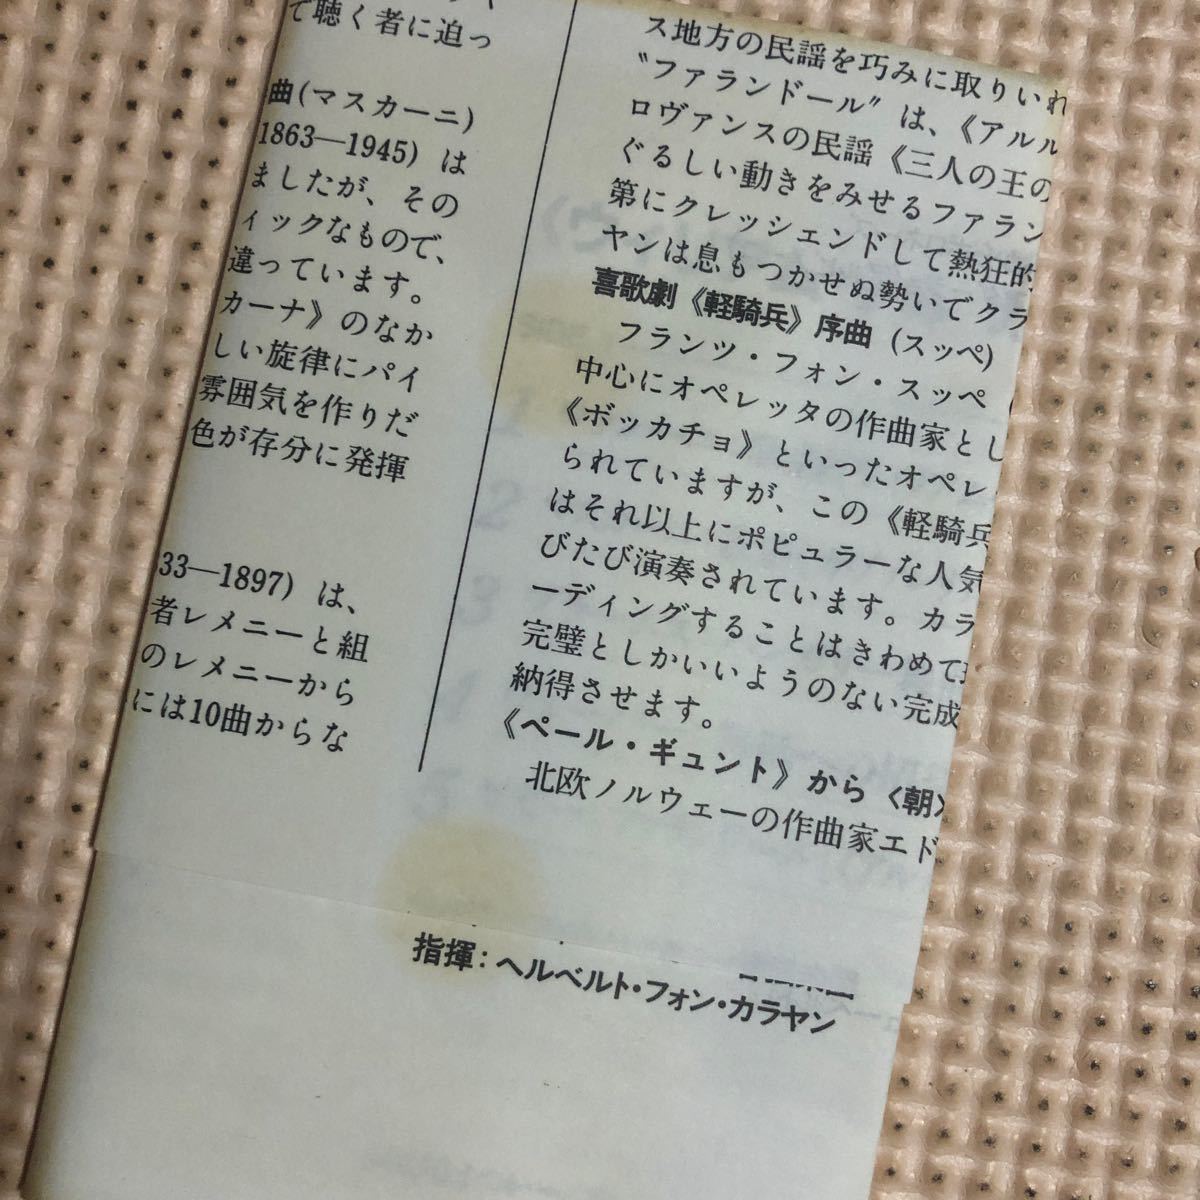 で聴く者に迫っ
曲(マスカーニ)
1863—1945) は
ましたが、その
ィックなもので、
違っています。
カーナ》のなか
しい旋律にパイ
雰囲気を作りだ
色が存分に発揮
33—1897) は、
者レメニーと組
のレメニーから
には10曲からな
ス地方の民謡を巧みに取りいれ
〝ファランドール〟は、《アルル
ロヴァンスの民謡《三人の王の
ぐるしい動きをみせるファラン
第にクレッシェンドして熱狂的
ヤンは息もつかせぬ勢いでクラ
喜歌劇《軽騎兵》序曲 (スッペ)
フランツ・フォン・スッペ (
中心にオペレッタの作曲家とし
《ボッカチョ》といったオペレ
られていますが、この《軽騎兵
はそれ以上にポピュラーな人気
びたび演奏されています。カラ
ーディングすることはきわめて
完璧としかいいようのない完成
納得させます。
《ペール・ギュント》から〈朝〉
北欧ノルウェーの作曲家エド
指揮：ヘルベルト・フォン・カラヤン